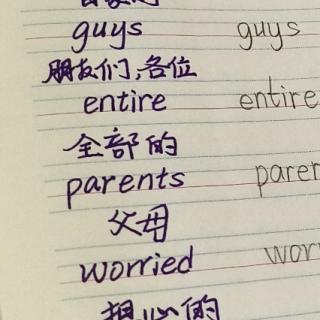 guys guys
朋友们,各位
entire entire
全部的
parents paren
父母
worried wor
担心的